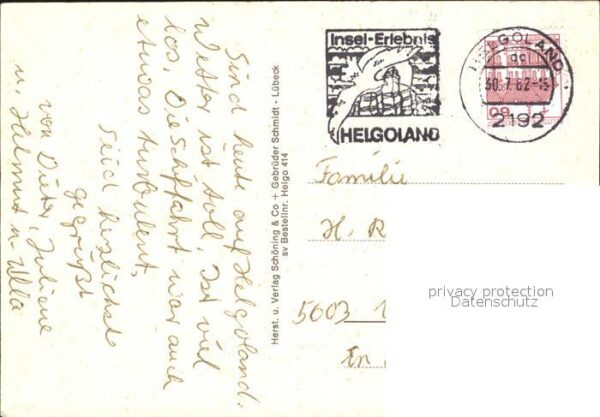 Sind heute auf Helgoland.
Wetter ist toll. Ist viel
los. Die Schiffahrt war auch
etwas turbulent.
Seid herzlichst
gegrüßt
von Dieter, Juliane
u. Helmut u. Ulla
Herst. u. Verlag Schöning & Co + Gebrüder Schmidt - Lübeck
sv Bestellnr. Helgo 414
Insel-Erlebnis
HELGOLAND
HELGOLAND
2192
Familie
H. R
5603
privacy protection
Datenschutz